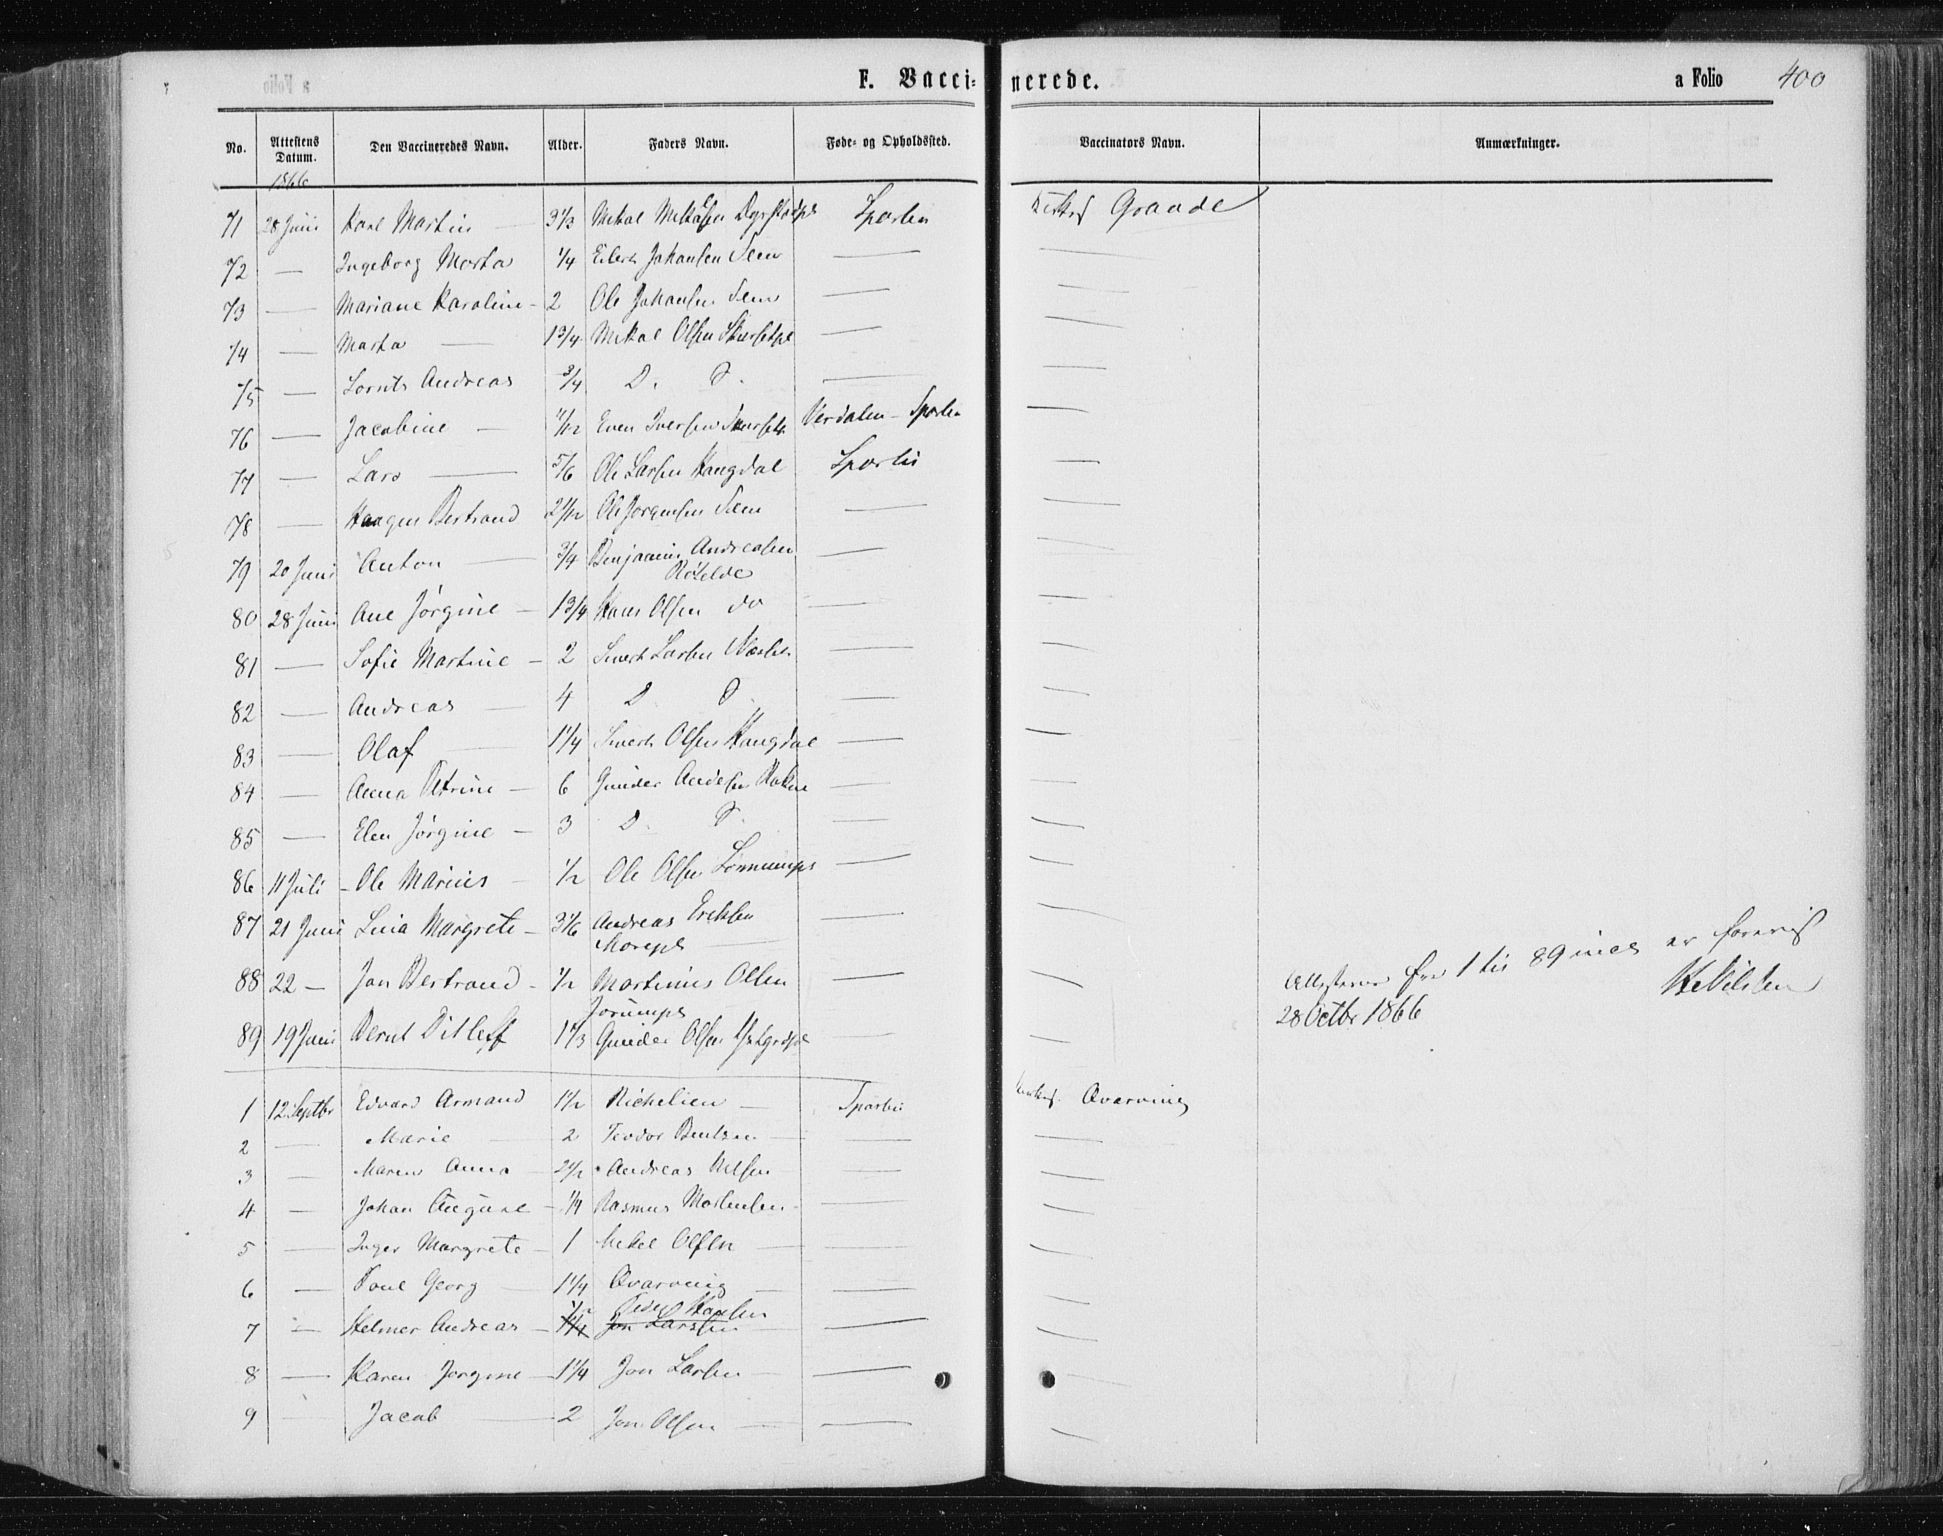 F. Vacci- nerede. a Folio 400
No. Attestens Datum. Den Vaccineredes Navn. Alder. Faders Navn. Føde- og Opholdssted. Vaccinators Navn. Anmærkninger.
1866
71 28 Juni Karl Martin — 3 1/3 Sparbu Graade
72 — Ingeborg Marta 1/4 Eilert Johansen Sem — —
73 — Mariane Karoline - 2 Ole Johansen Sem — —
74 — Marta — 1 3/4 Mikal Olsen — —
75 — Lornts Andreas 3/4 D. D. — —
76 — Jacobine — Even Iversen Verdalen - Sparbu —
77 — Lars — 5/6 Ole Larsen Haugdal Sparbu —
78 — Haagen Bertrand 2 1/12 Ole Jørgensen Sem — —
79 20 Juni Anton — 3/4 Benjamin Andreasen — —
80 28 Juni Ane Jørgine — 1 3/4 Hans Olsen do — —
81 — Sofie Martine — 2 Sivert Larsen — —
82 — Andreas — 4 D D. — —
83 — Olaf — 1 1/4 Sivert Olsen Haugdal — —
84 — Anna Petrine — 6 Gunder — —
85 — Elen Jørgine — 3 D. D. — —
86 11 Juli - Ole Marius — 1/2 Ole Olsen — —
87 21 Juni Lina Margrete — 3 1/6 Andreas Eriksen — —
88 22 — Jon Bertrand - 1/2 Martinus Olsen — —
Attesterne fra 1 til 89 incl er forevist
28 Octbr 1866
89 19 Juni Bernt Ditleff 1 1/3 Gunder Olsen — —
1 12 Septbr Edvard Armand 1 1/2 Richelieu — Sparbu Qvarving
2 — Marie — 2 Teodor Bentzen — —
3 — Maren Anna — 2 1/2 Andreas Nilsen — —
4 — Johan August — 1/4 Rasmus Mortensen — —
5 — Inger Margrete — 1 Mikel Olsen — — —
6 — Poul Georg — 1 1/4 Qvarving — — —
7 — Helmer Andreas — 1/2 Peder Hansen — —
1 1/4 Jon Larsen
8 — Karen Jørgine — 1 1/4 Jon Larsen — — —
9 — Jacob — 2 Jon Olsen — — —